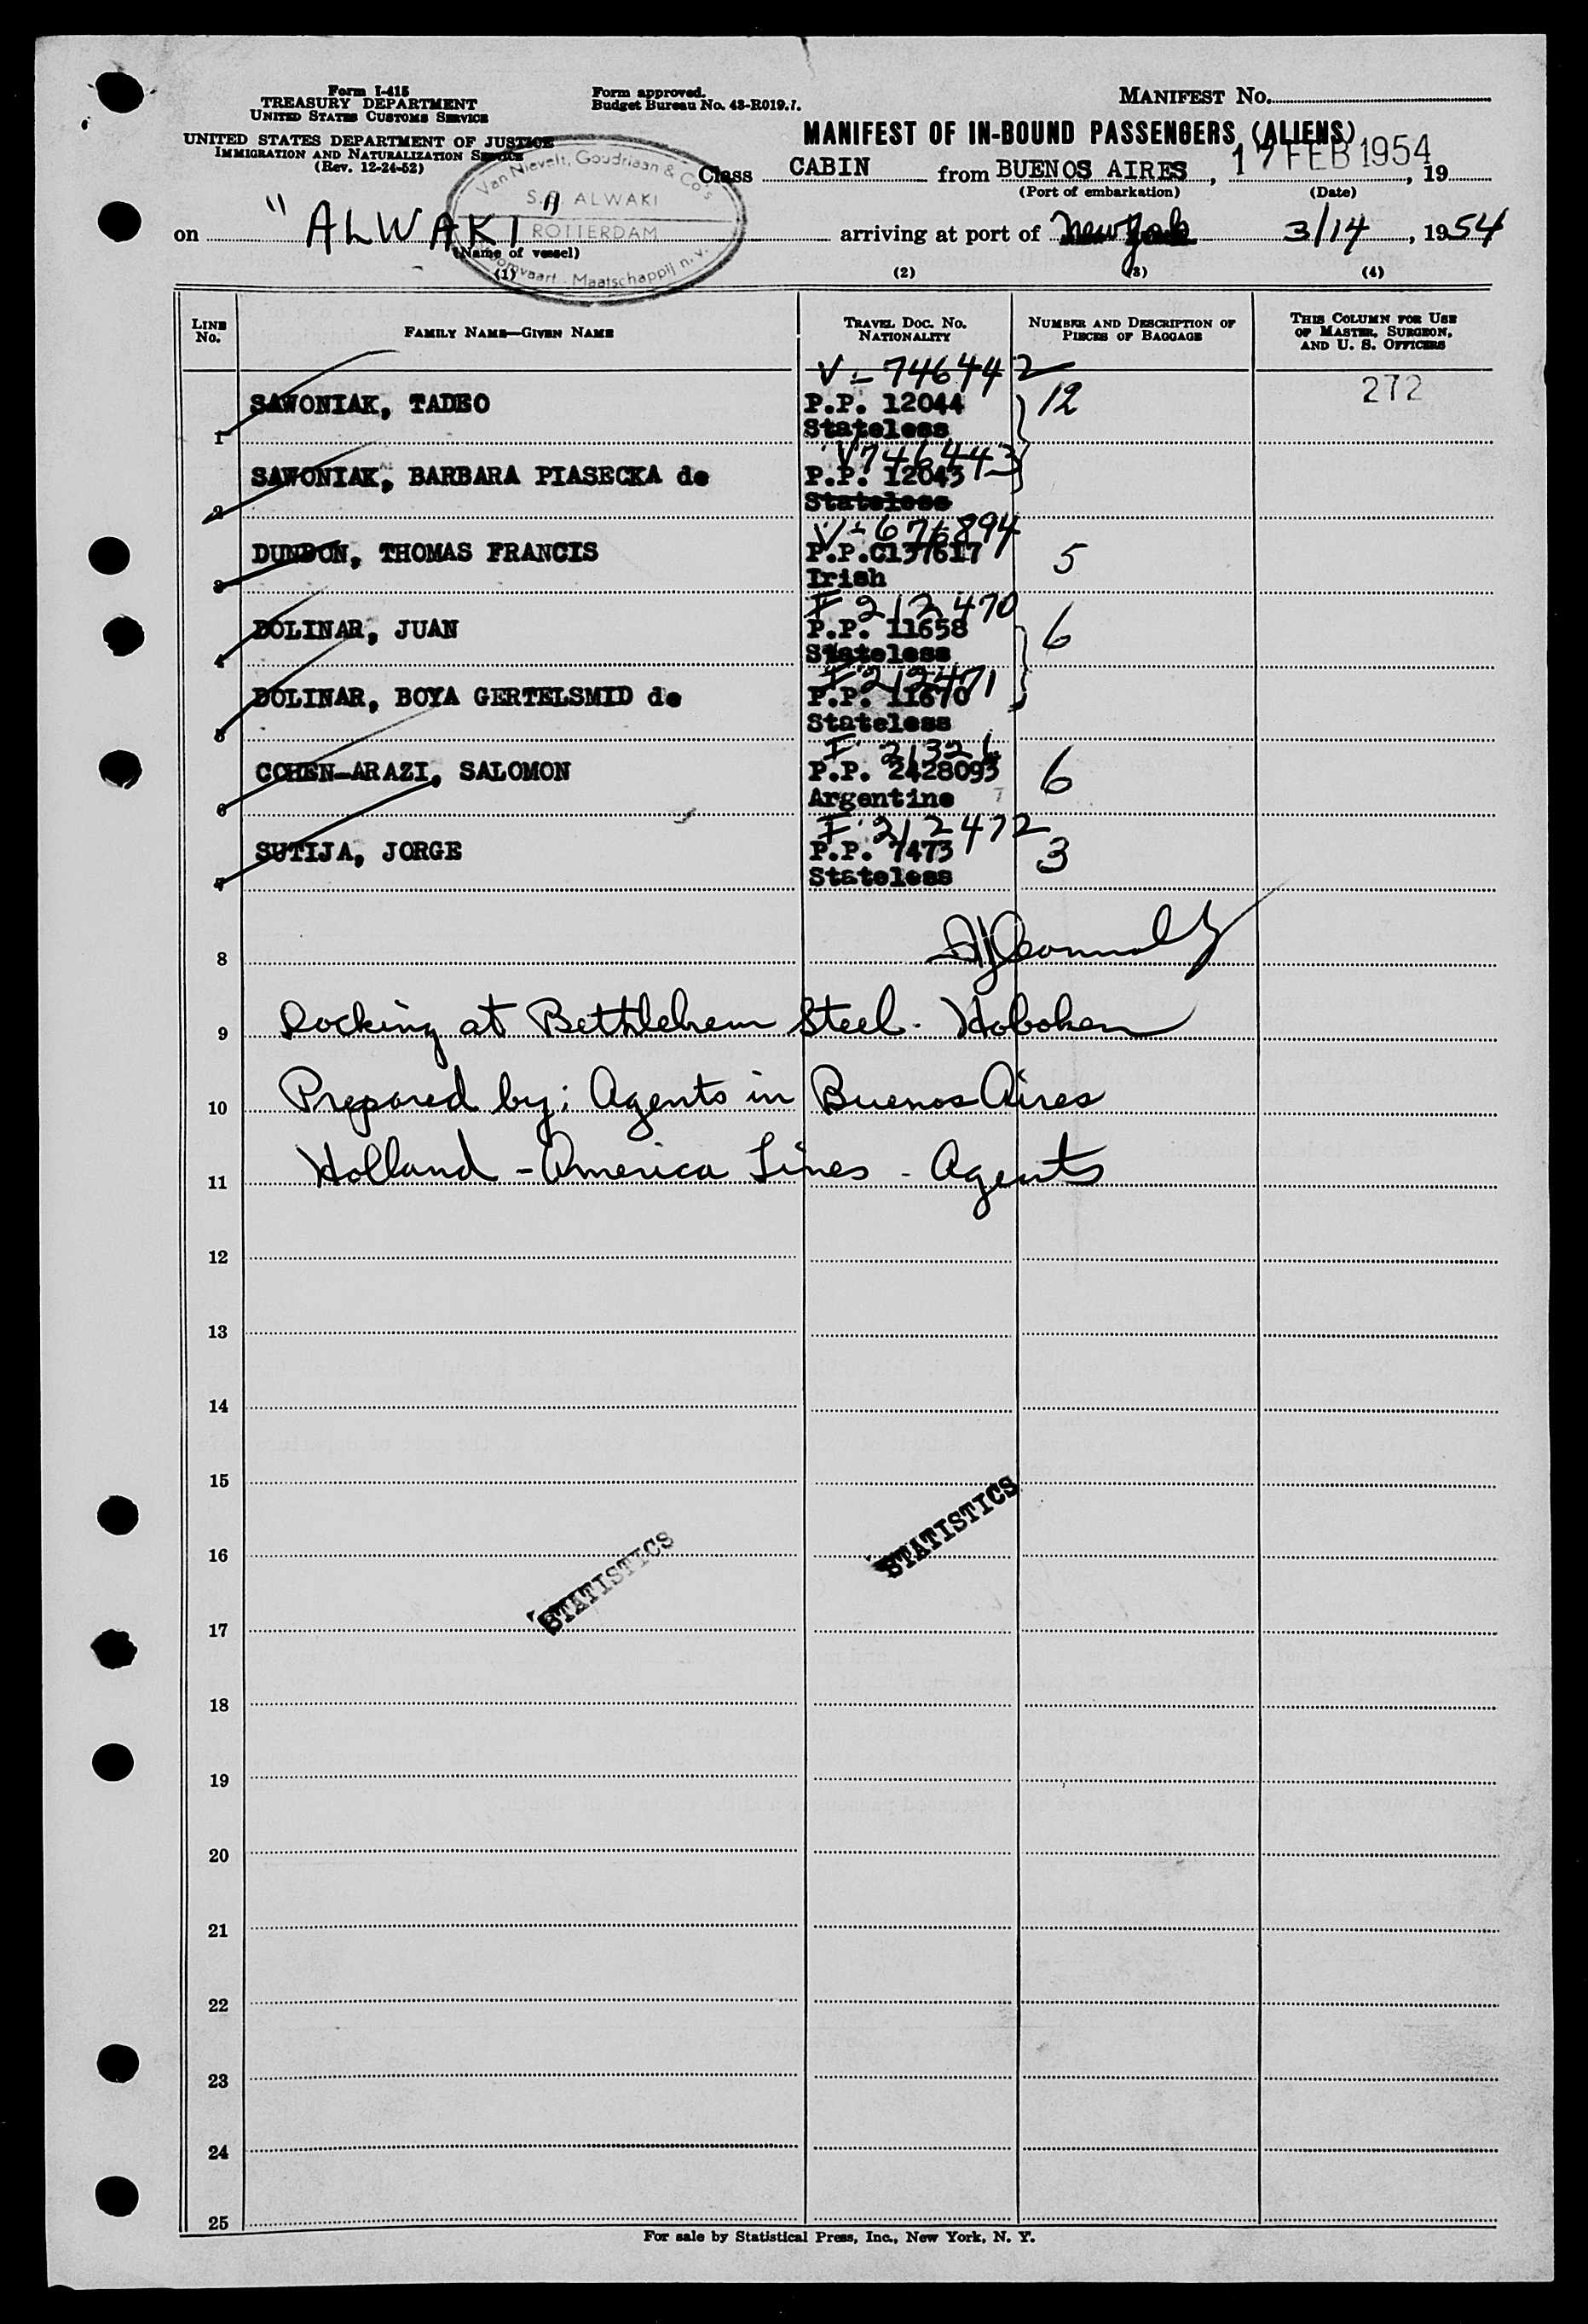 Form I-415
TREASURY DEPARTMENT
UNITED STATES CUSTOMS SERVICE
UNITED STATES DEPARTMENT OF JUSTICE
IMMIGRATION AND NATURALIZATION SERVICE
(Rev. 12-24-52)
Form approved.
Budget Bureau No. 43-R019.7.
MANIFEST No.
MANIFEST OF IN-BOUND PASSENGERS (ALIENS)
Class CABIN from BUENOS AIRES, 17 FEB 1954, 19
(Port of embarkation) (Date)
Van Nievelt, Goudriaan & Co's
S.S. ALWAKI
ROTTERDAM
Stoomvaart-Maatschappij n.v.
on "ALWAKI arriving at port of New York 3/14, 1954
(Name of vessel)
(1) (2) (3) (4)
LINE No. FAMILY NAME—GIVEN NAME TRAVEL DOC. No. NATIONALITY NUMBER AND DESCRIPTION OF PIECES OF BAGGAGE THIS COLUMN FOR USE OF MASTER, SURGEON, AND U. S. OFFICERS
V-746442
1 SAWONIAK, TADEO P.P. 12044 12 272
Stateless
V746443
2 SAWONIAK, BARBARA PIASECKA de P.P. 12043
Stateless
V-676894
3 DUNDON, THOMAS FRANCIS P.P.C137617 5
Irish
I 212470
4 DOLINAR, JUAN P.P. 11658 6
Stateless
I 212471
5 DOLINAR, BOYA GERTELSMID de P.P. 11670
Stateless
6 COHEN-ARAZI, SALOMON P.P. 2428093 6
Argentine
I 212472
7 SUTIJA, JORGE P.P. 7473 3
Stateless
8
9 Docking at Bethlehem Steel. Hoboken
10 Prepared by: Agents in Buenos Aires
11 Holland-America Lines - Agents
12
13
14
15
16 STATISTICS STATISTICS
17
18
19
20
21
22
23
24
25
For sale by Statistical Press, Inc., New York, N. Y.